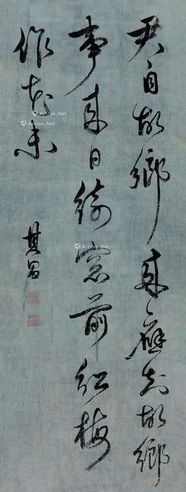 君自故鄉來應知故鄉
事來日綺窗前紅梅
作花未
其昌
Artron.Net